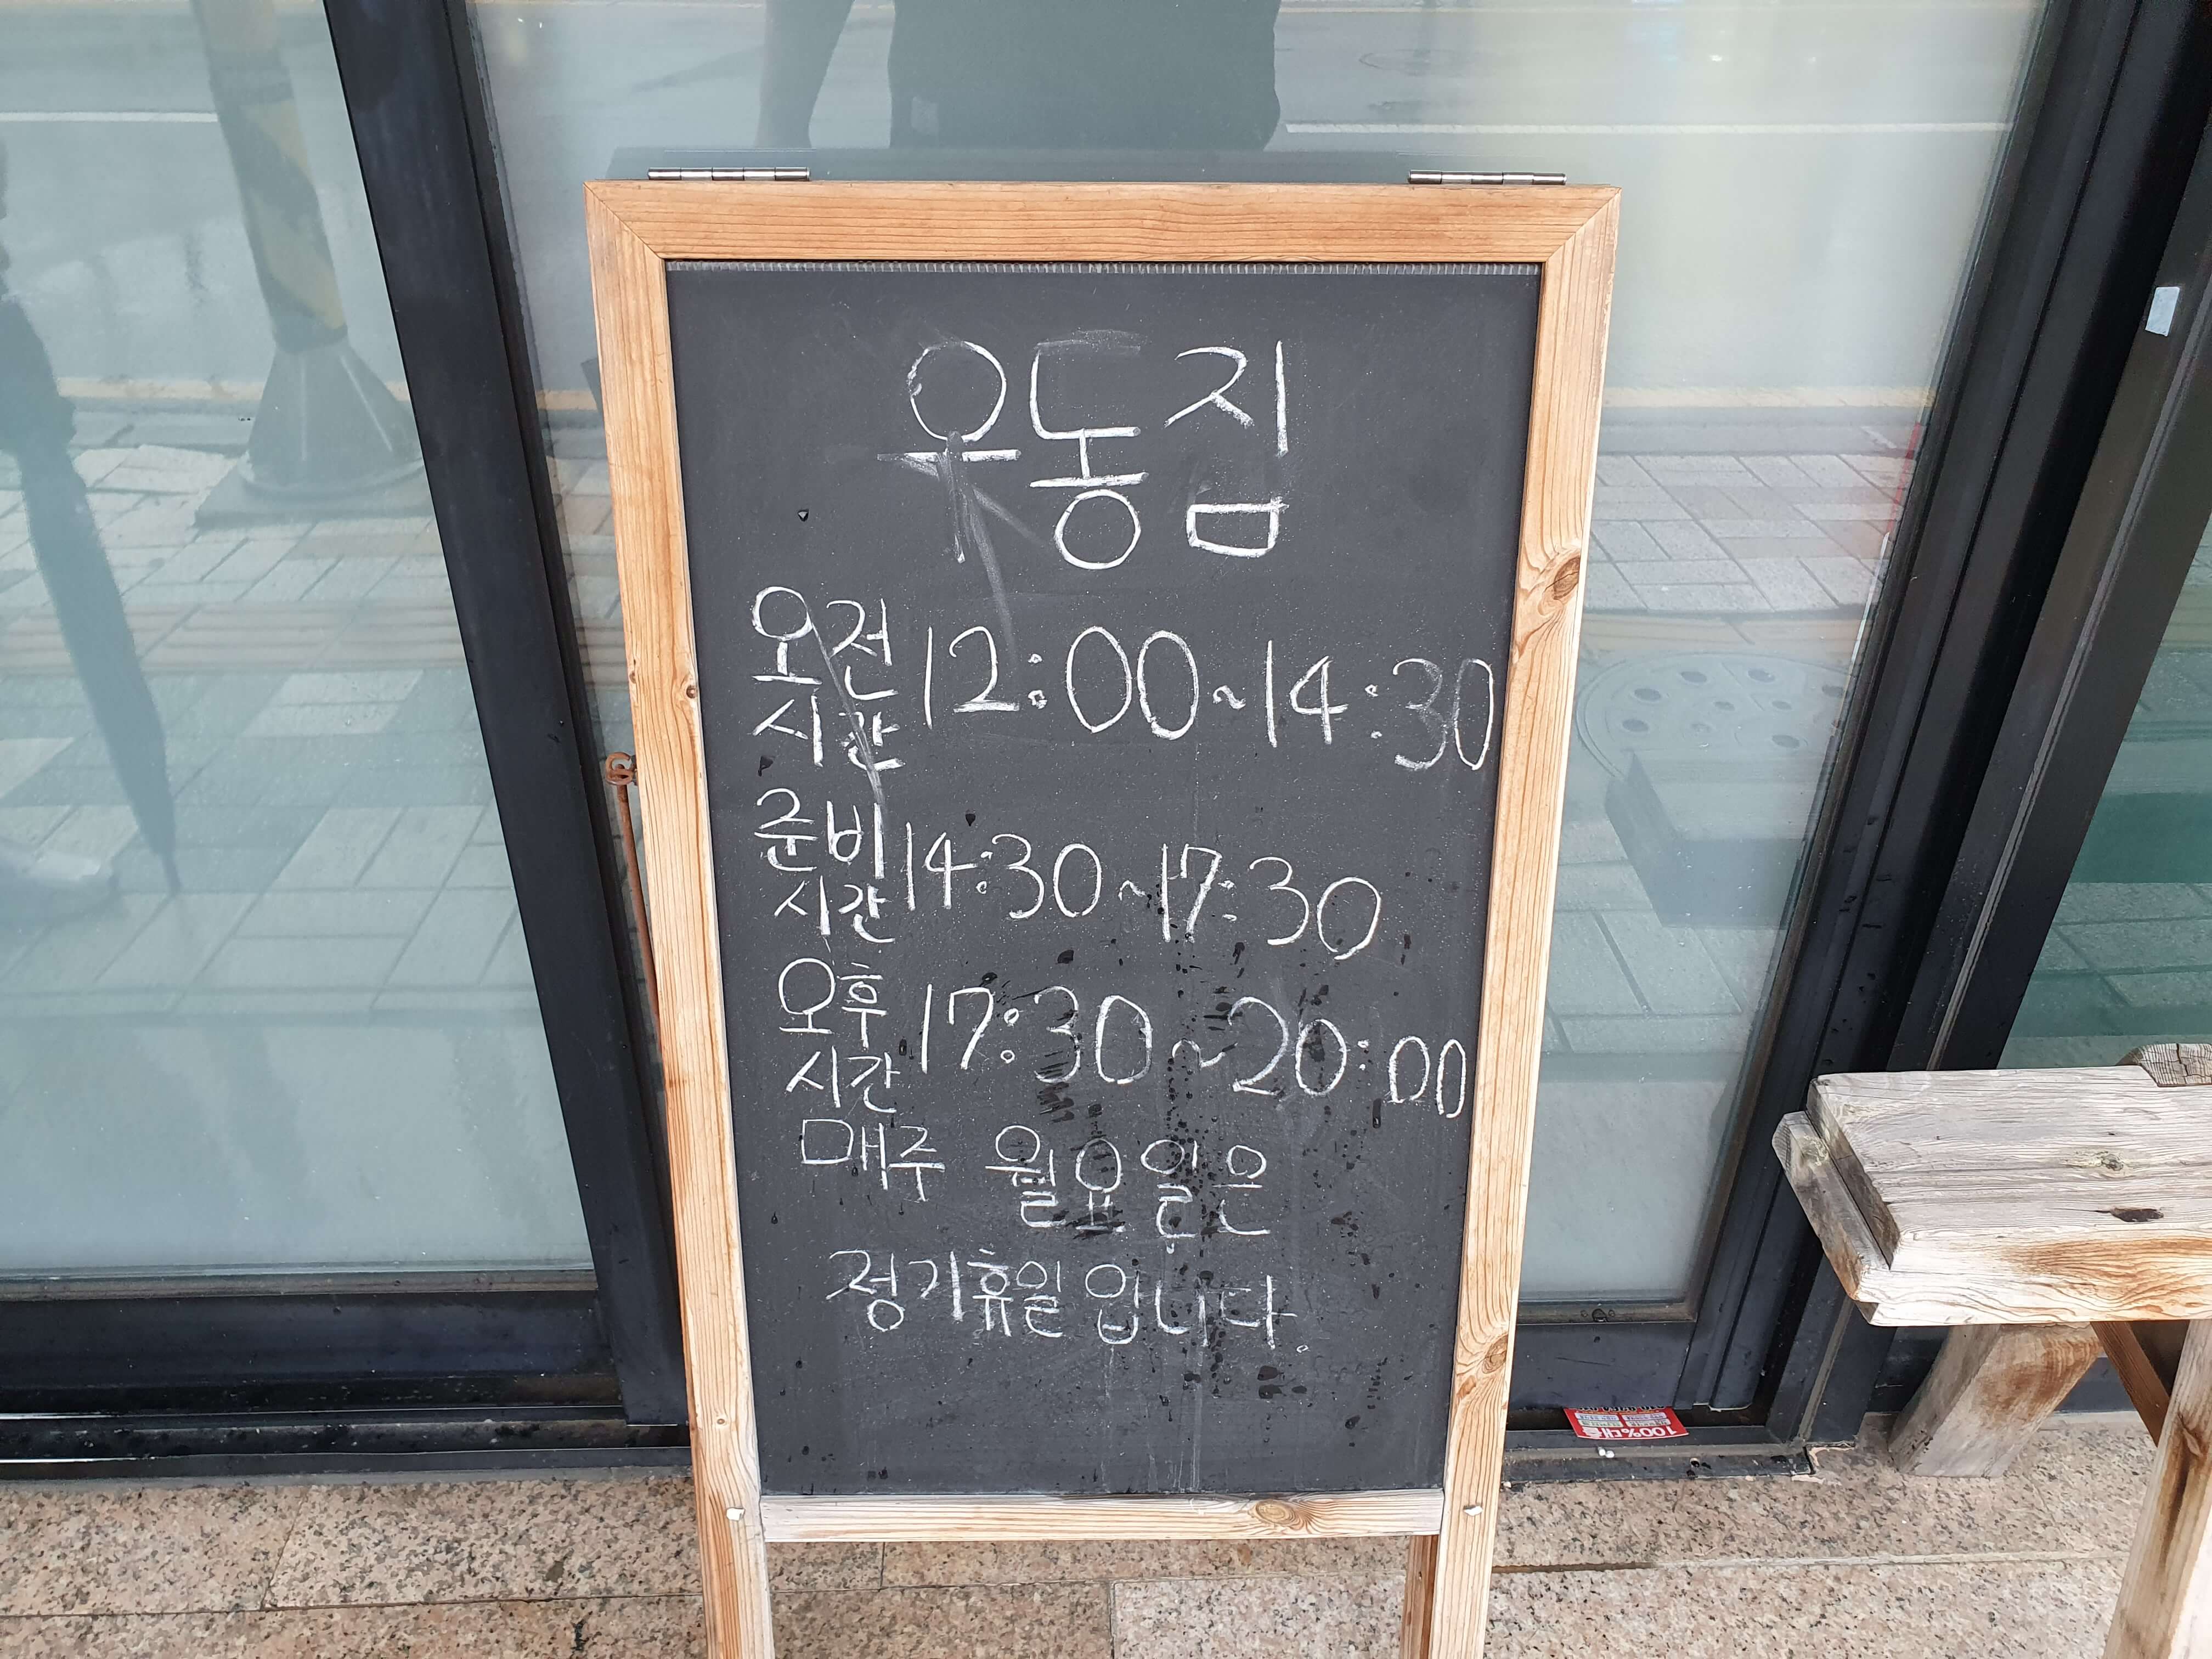 우동집
오전
시간 12:00~14:30
준비
시간 14:30~17:30
오후
시간 17:30~20:00
매주 월요일은
정기휴일 입니다.
100%대출